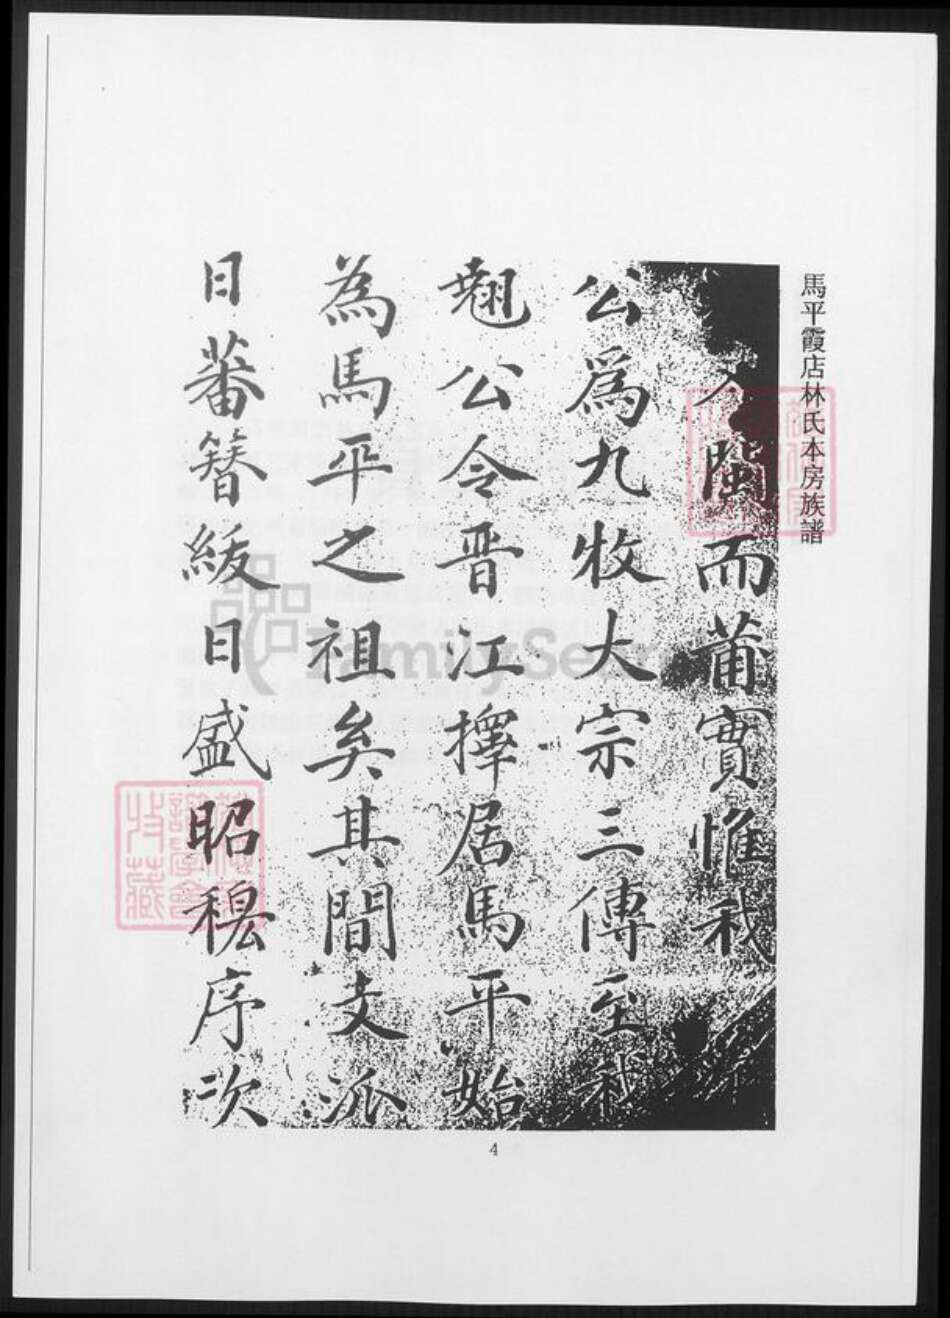 馬平霞店林氏本房族譜
入閩而莆實惟我
公為九牧大宗三傳至我
翹公令晋江擇居馬平始
為馬平之祖矣其間支派
日蕃簪紱日盛昭穆序次
4
FamilySearch